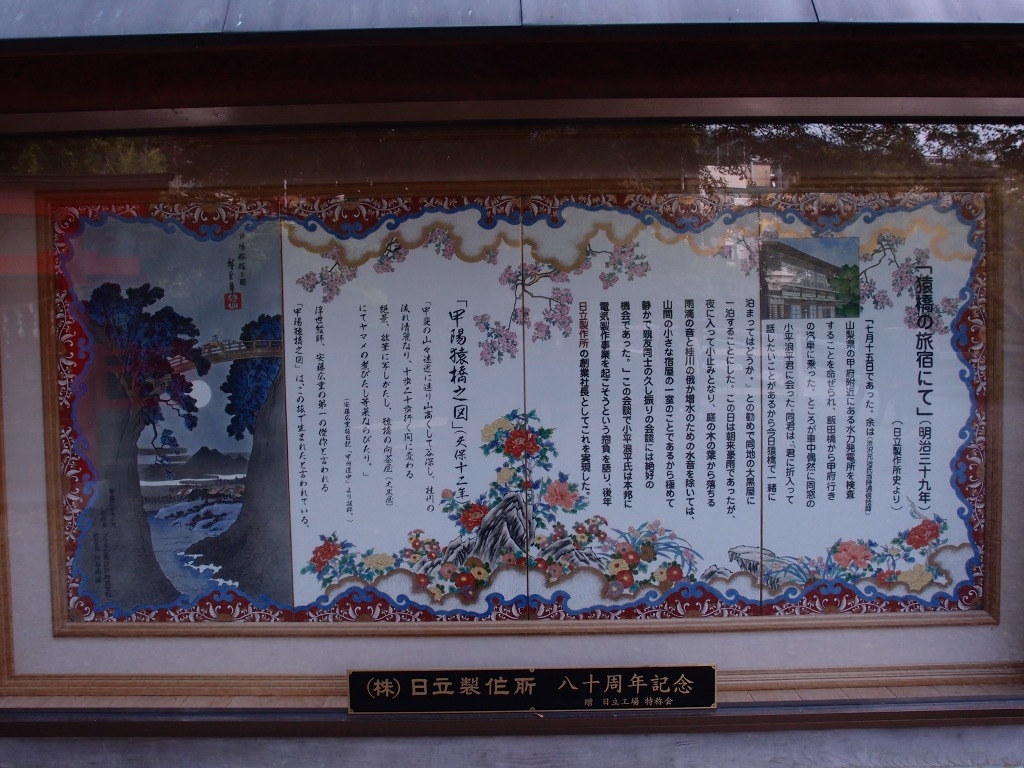 「猿橋の旅宿にて」(明治三十九年)
(日立製作所史より)
「七月十五日であった。余は
山梨県の甲府附近にある水力発電所を検査
することを命ぜられ、飯田橋から甲府行き
の汽車に乗った。ところが車中偶然に同窓の
小平浪平君に会った。同君は、"君に折入って
話したいことがあるから今日猿橋で一緒に
泊まってはどうか。"との勧めで同地の大黒屋に
一泊することにした。この日は朝来豪雨であったが、
夜に入って小止みとなり、庭の木の葉から落ちる
雨滴の音と桂川の俄か増水のための水音を除いては、
山間の小さな宿屋の一室のことであるから極めて
静かで親友同士の久し振りの会談には絶好の
機会であった。」この会談で小平浪平氏は本邦に
電気製作事業を起こそうという抱負を語り、後年
日立製作所の創業社長としてこれを実現した。
「甲陽猿橋之図」(天保十二年)
「甲斐の山々遠近に連り山高くして谷深し、桂川の
流れ清麗なり、十歩二十歩行く間に変わる
絶景、拙筆に写しがたし、猿橋の向茶屋(大黒屋)
にてヤマメの煮びたし等菜ならびたり。」
(安藤広重旅日記「甲州道中」より抜粋。)
浮世絵師、安藤広重の第一の傑作と言われる
「甲陽猿橋之図」は、この旅で生まれたと言われている。
甲陽猿橋之図
廣重筆
(株)日立製作所 八十周年記念
贈 日立工場 特称会